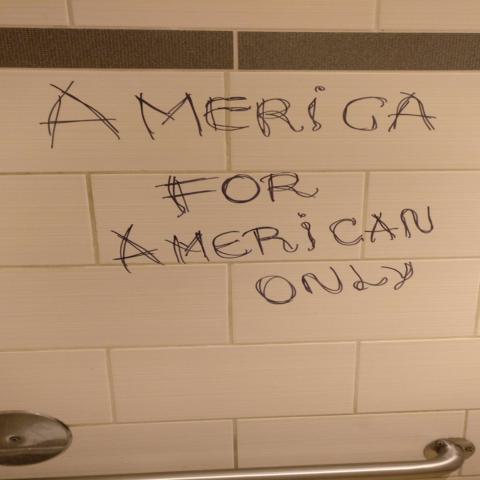 AMERiCA
FOR
AMERiCAN
ONLY